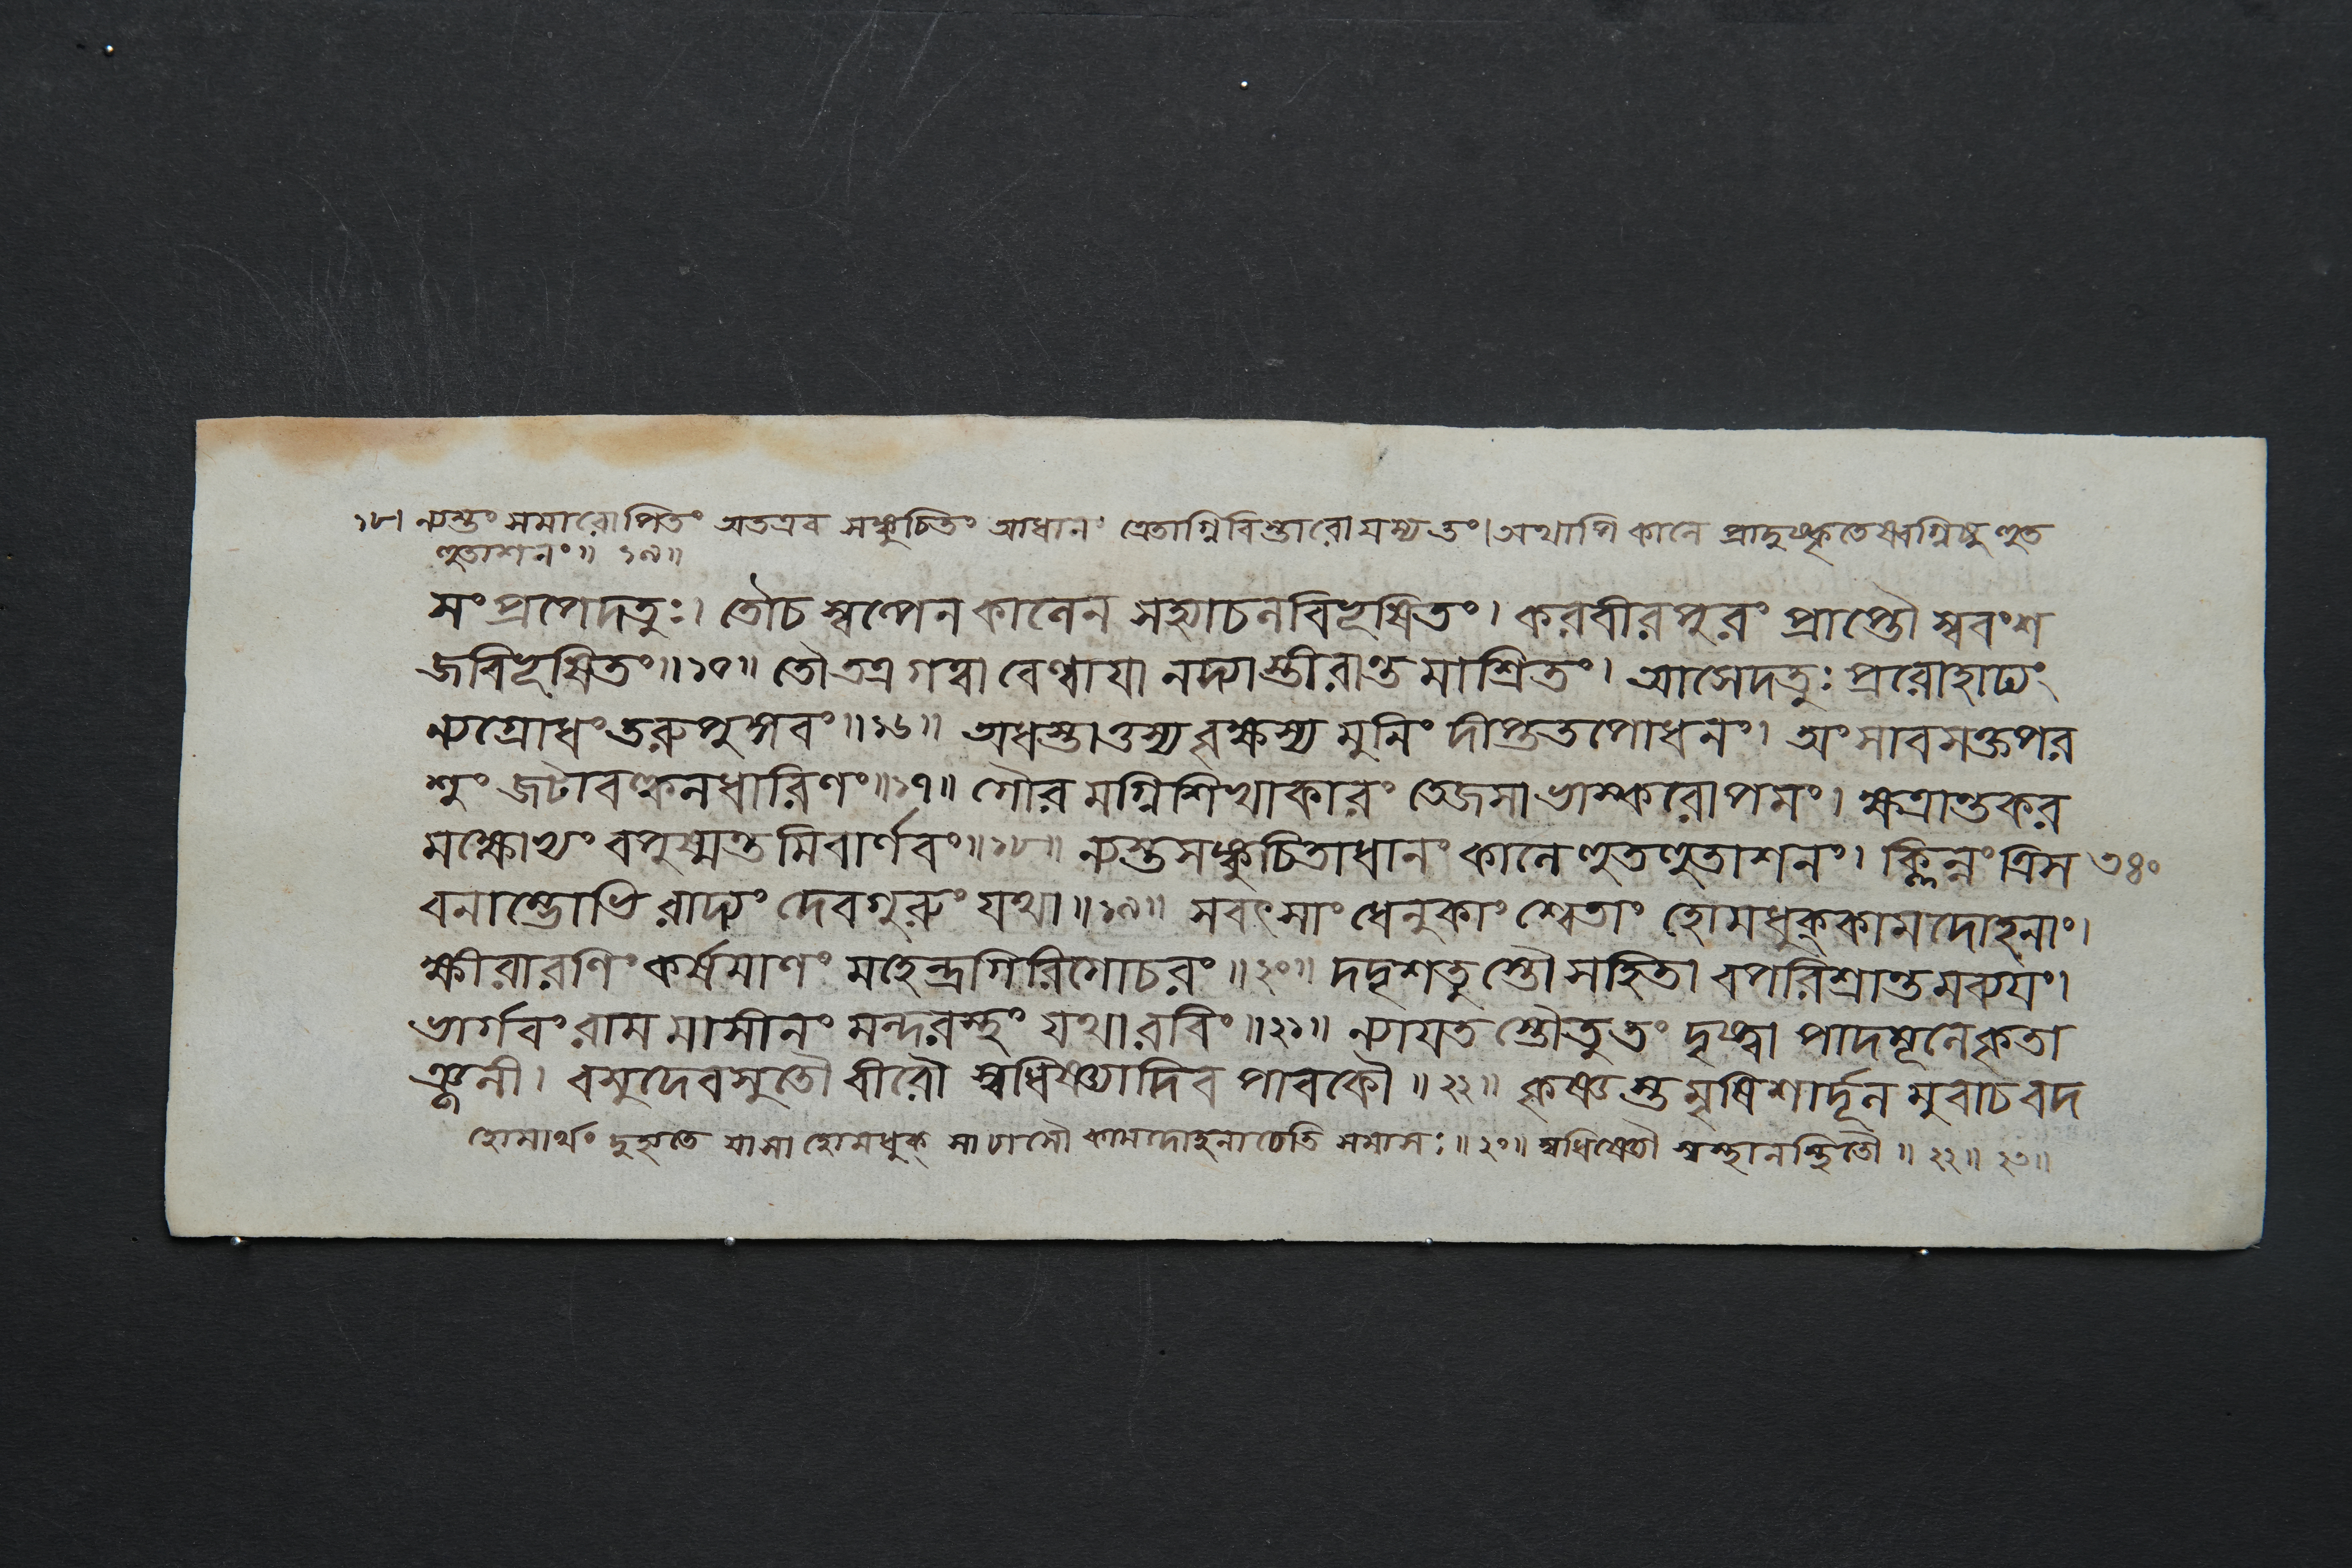 ১৮। ন্যস্তং সমারোপিতং অতএব সঙ্কুচিতং আধানং ত্রেতাগ্নিবিস্তারো যস্য তং। অথাপি কালে প্রাদুষ্কৃতেষ্বগ্নিষু হুত
হুতাশনং॥ ১৯॥
সং প্রপেদতুঃ। তৌ চ স্বল্পেন কালেন সহ্যাচলবিভূষিতং। করবীরপুরং প্রাপ্তৌ স্ববংশ
জবিভূষিতং॥১৫॥ তৌ তত্র গত্বা বেণ্বায়া নদ্যাস্তীরান্তমাশ্রিতং। আসেদতুঃ প্ররোহাঢ্যং
ন্যগ্রোধং তরুপুঙ্গবং॥১৬॥ অধস্তাত্তস্য বৃক্ষস্য মুনিং দীপ্ততপোধনং। অংসাবসক্তপর
শুং জটাবল্কলধারিণং॥১৭॥ গৌরমগ্নিশিখাকারং তেজসা ভাস্করোপমং। ক্ষত্রান্তকর
মক্ষোভ্যং বপুষ্মন্তমিবার্ণবং॥১৮॥ ন্যস্তসঙ্কুচিতাধানং কালে হুতহুতাশনং। ক্লিন্নং ত্রিস ৩৪০
বনাম্ভোভিরাদ্যং দেবগুরুং যথা॥১৯॥ সবৎসাং ধেনুকাং শ্বেতাং হোমধুক্কামদোহনাং।
ক্ষীরারণিং কর্ষমাণং মহেন্দ্রগিরিগোচরং॥২০॥ দদৃশতুস্তৌ সহিতাবপরিশ্রান্তমব্যয়ং।
ভার্গবং রামমাসীনং মন্দরস্থং যথা রবিং॥২১॥ ন্যায়তস্তৌ তু তং দৃষ্ট্বা পাদমূলে কৃতা
ঞ্জলী। বসুদেবসুতৌ বীরৌ স্বধিষ্ণ্যাদিব পাবকৌ॥২২॥ কৃষ্ণস্তমৃষিশার্দূলমুবাচ বদ
হোমার্থং দুহ্যতে যা সা হোমধুক্ সা চাসৌ কামদোহনা চেতি সমাসঃ॥২০॥ স্বধিষ্ণ্যৌ স্বস্থানস্থিতৌ॥২২॥ ২৩॥